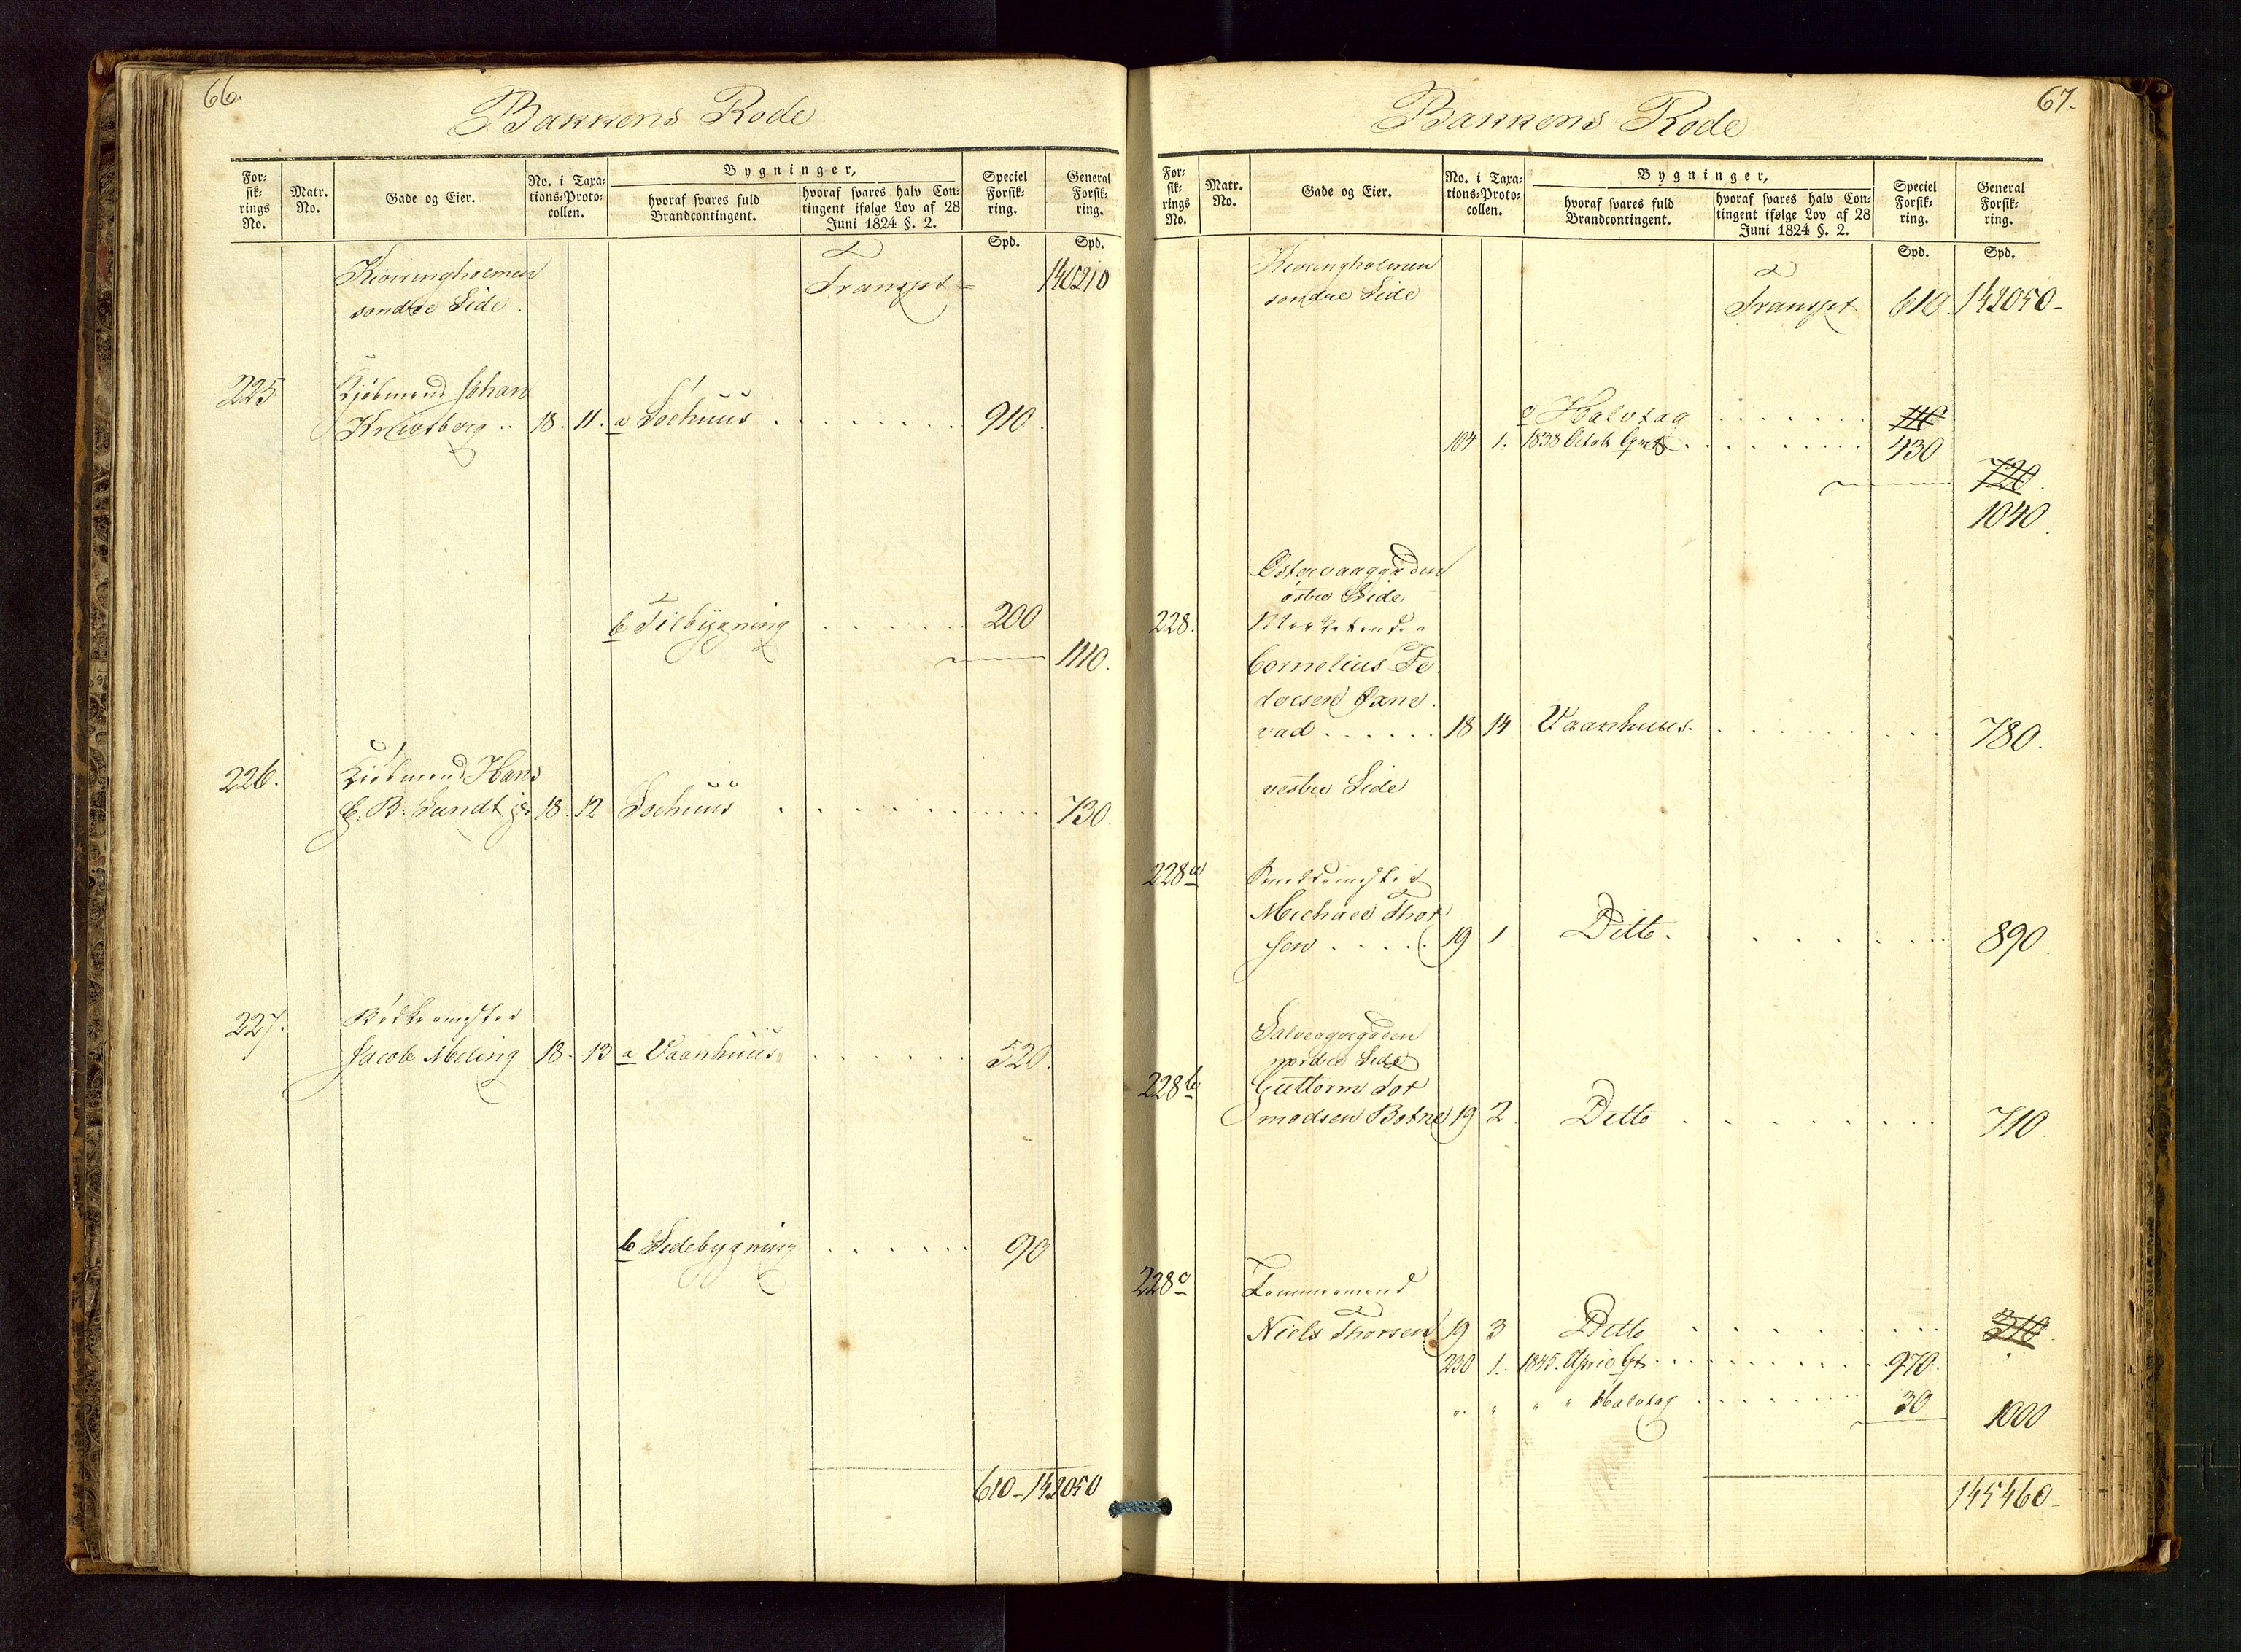 66.
Bakkens Rode
For-
sik-
rings
No.
Matr.
No.
Gade og Eier.
No. i Taxa-
tions-Proto-
collen.
Bygninger,
hvoraf svares fuld
Brandcontingent.
hvoraf svares halv Con-
tingent ifølge Lov af 28
Juni 1824 §. 2.
Speciel
Forsik-
ring.
General
Forsik-
ring.
Spd. Spd.
søndre Side. Transpt 140210
225 Kjøbmand Johan
Knivsberg .. 18. 11. a Søehuus 910.
b Tilbygning 200
1110.
226. Kjøbmand Hans
B. Sundt jr 18. 12 Søehuus 730.
227. Bødkermester
Jacob Meling 18. 13 a Vaanhuus 520.
b Sidebygning 90
610 - 142050
67.
Bakkens Rode
For-
sik-
rings
No.
Matr.
No.
Gade og Eier.
No. i Taxa-
tions-Proto-
collen.
Bygninger,
hvoraf svares fuld
Brandcontingent.
hvoraf svares halv Con-
tingent ifølge Lov af 28
Juni 1824 §. 2.
Speciel
Forsik-
ring.
General
Forsik-
ring.
Spd. Spd.
søndre Side Transpt 610. 142050-
c Halvtag 110
104 1. 1838 Octob 430
720.
1040.
Østervaaggaden
østre Side
228.
Cornelius Te
dorsen Qvane
vad 18 14 Vaanhuus. 780.
vestre Side
228a
Michael Thor
sen 19 1 Ditto. 890.
nordre Side
228b Guttorm Tor
modsen Botne 19 2. Ditto 710.
228c Tømmermand
Niels Thorsen 19 3 Ditto 310.
230 1. 1845. April 970.
" " " " Halvtag 30 1000
145460-